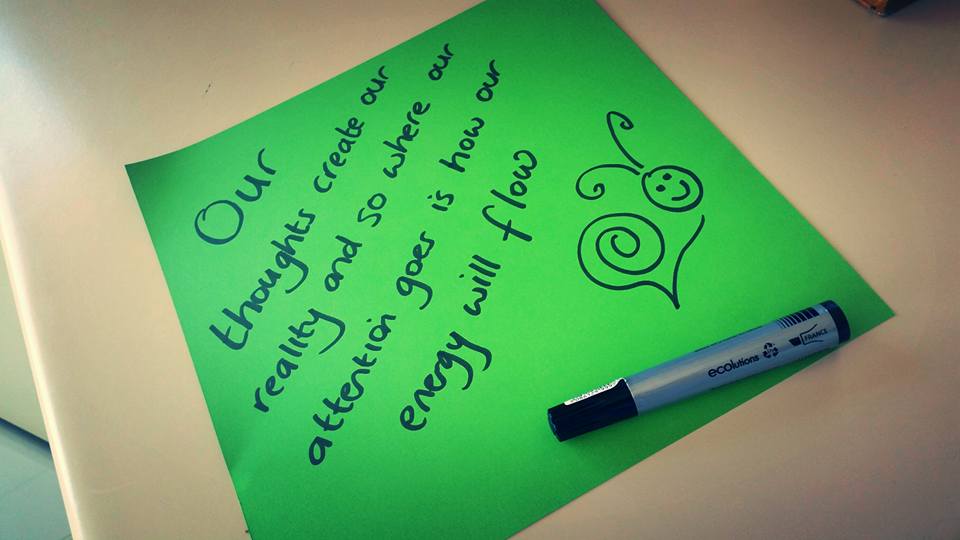 Our
thoughts create our
reality and so where our
attention goes is how our
energy will flow
ecolutions
FRANCE